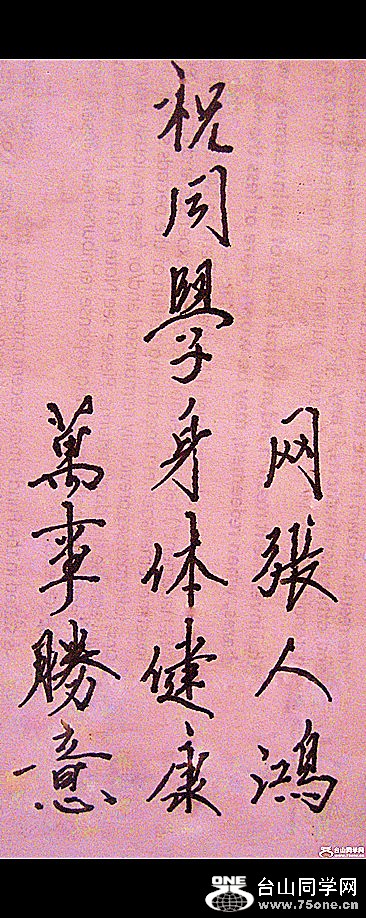 网張人鴻
祝同學身体健康
萬事勝意
台山同学网
ONE
台山同学网
www.75one.cn